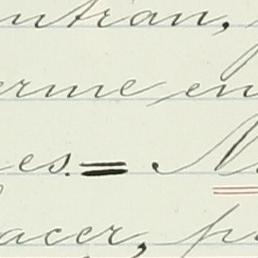 ntran,
erme en
es. = N
acer, p